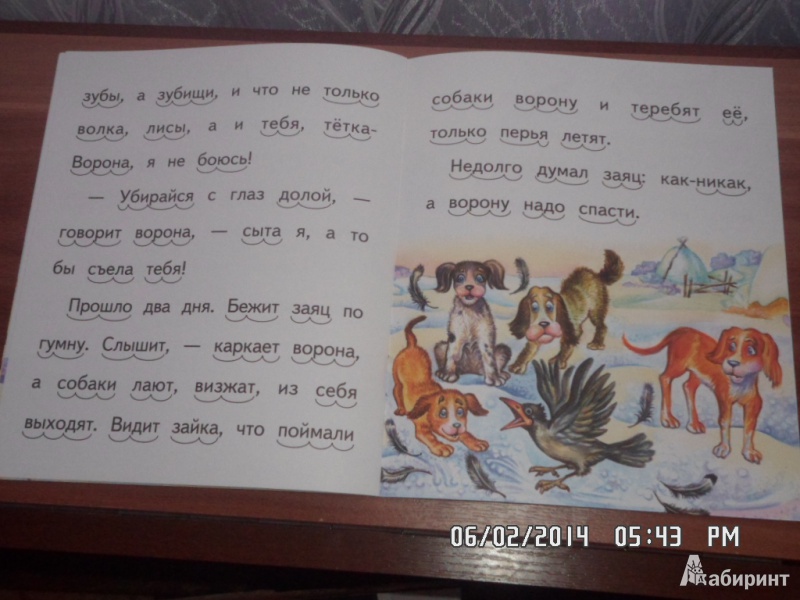 зубы, а зубищи, и что не только
волка, лисы, а и тебя, тётка-
Ворона, я не боюсь!
— Убирайся с глаз долой, —
говорит ворона, — сыта я, а то
бы съела тебя!
Прошло два дня. Бежит заяц по
гумну. Слышит, — каркает ворона,
а собаки лают, визжат, из себя
выходят. Видит зайка, что поймали
собаки ворону и теребят её,
только перья летят.
Недолго думал заяц: как-никак,
а ворону надо спасти.
06/02/2014 05:43 PM
Лабиринт